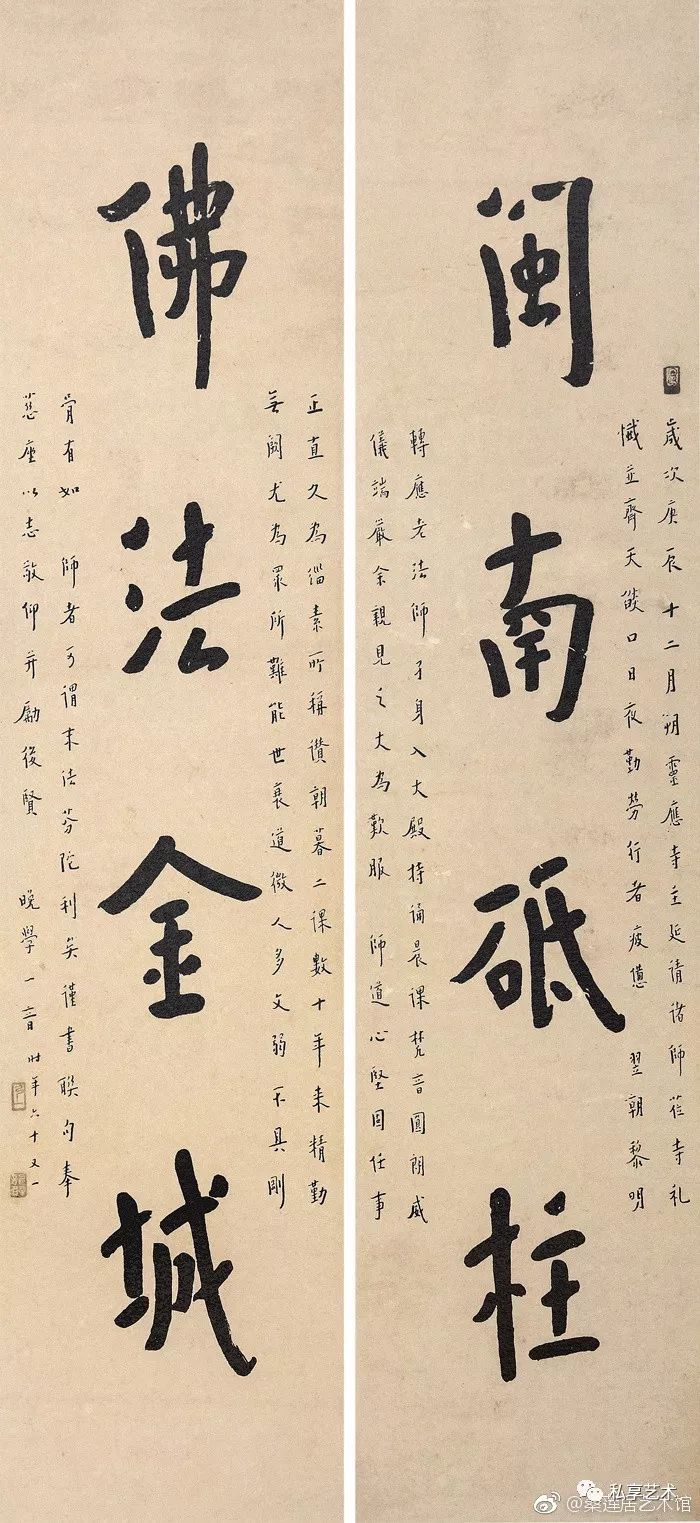 閩南砥柱
歲次庚辰十二月朔靈應寺主延請諸師莅寺礼
懺並齊天燄口日夜勤勞行者疲憊 翌朝黎明
轉應老法師孑身入大殿持誦晨課梵音圓朗威
儀端嚴余親見之大為歎服 師道心堅固任事
佛法金城
正直久為緇素所稱讚朝暮二課數十年来精勤
無闕尤為眾所難能世衰道微人多文弱不具剛
骨有如 師者可謂末法芬陀利矣謹書聯句奉
慈座以志敬仰并勵後賢 晚學一音時年六十又一
私享艺术
@桑莲居艺术馆